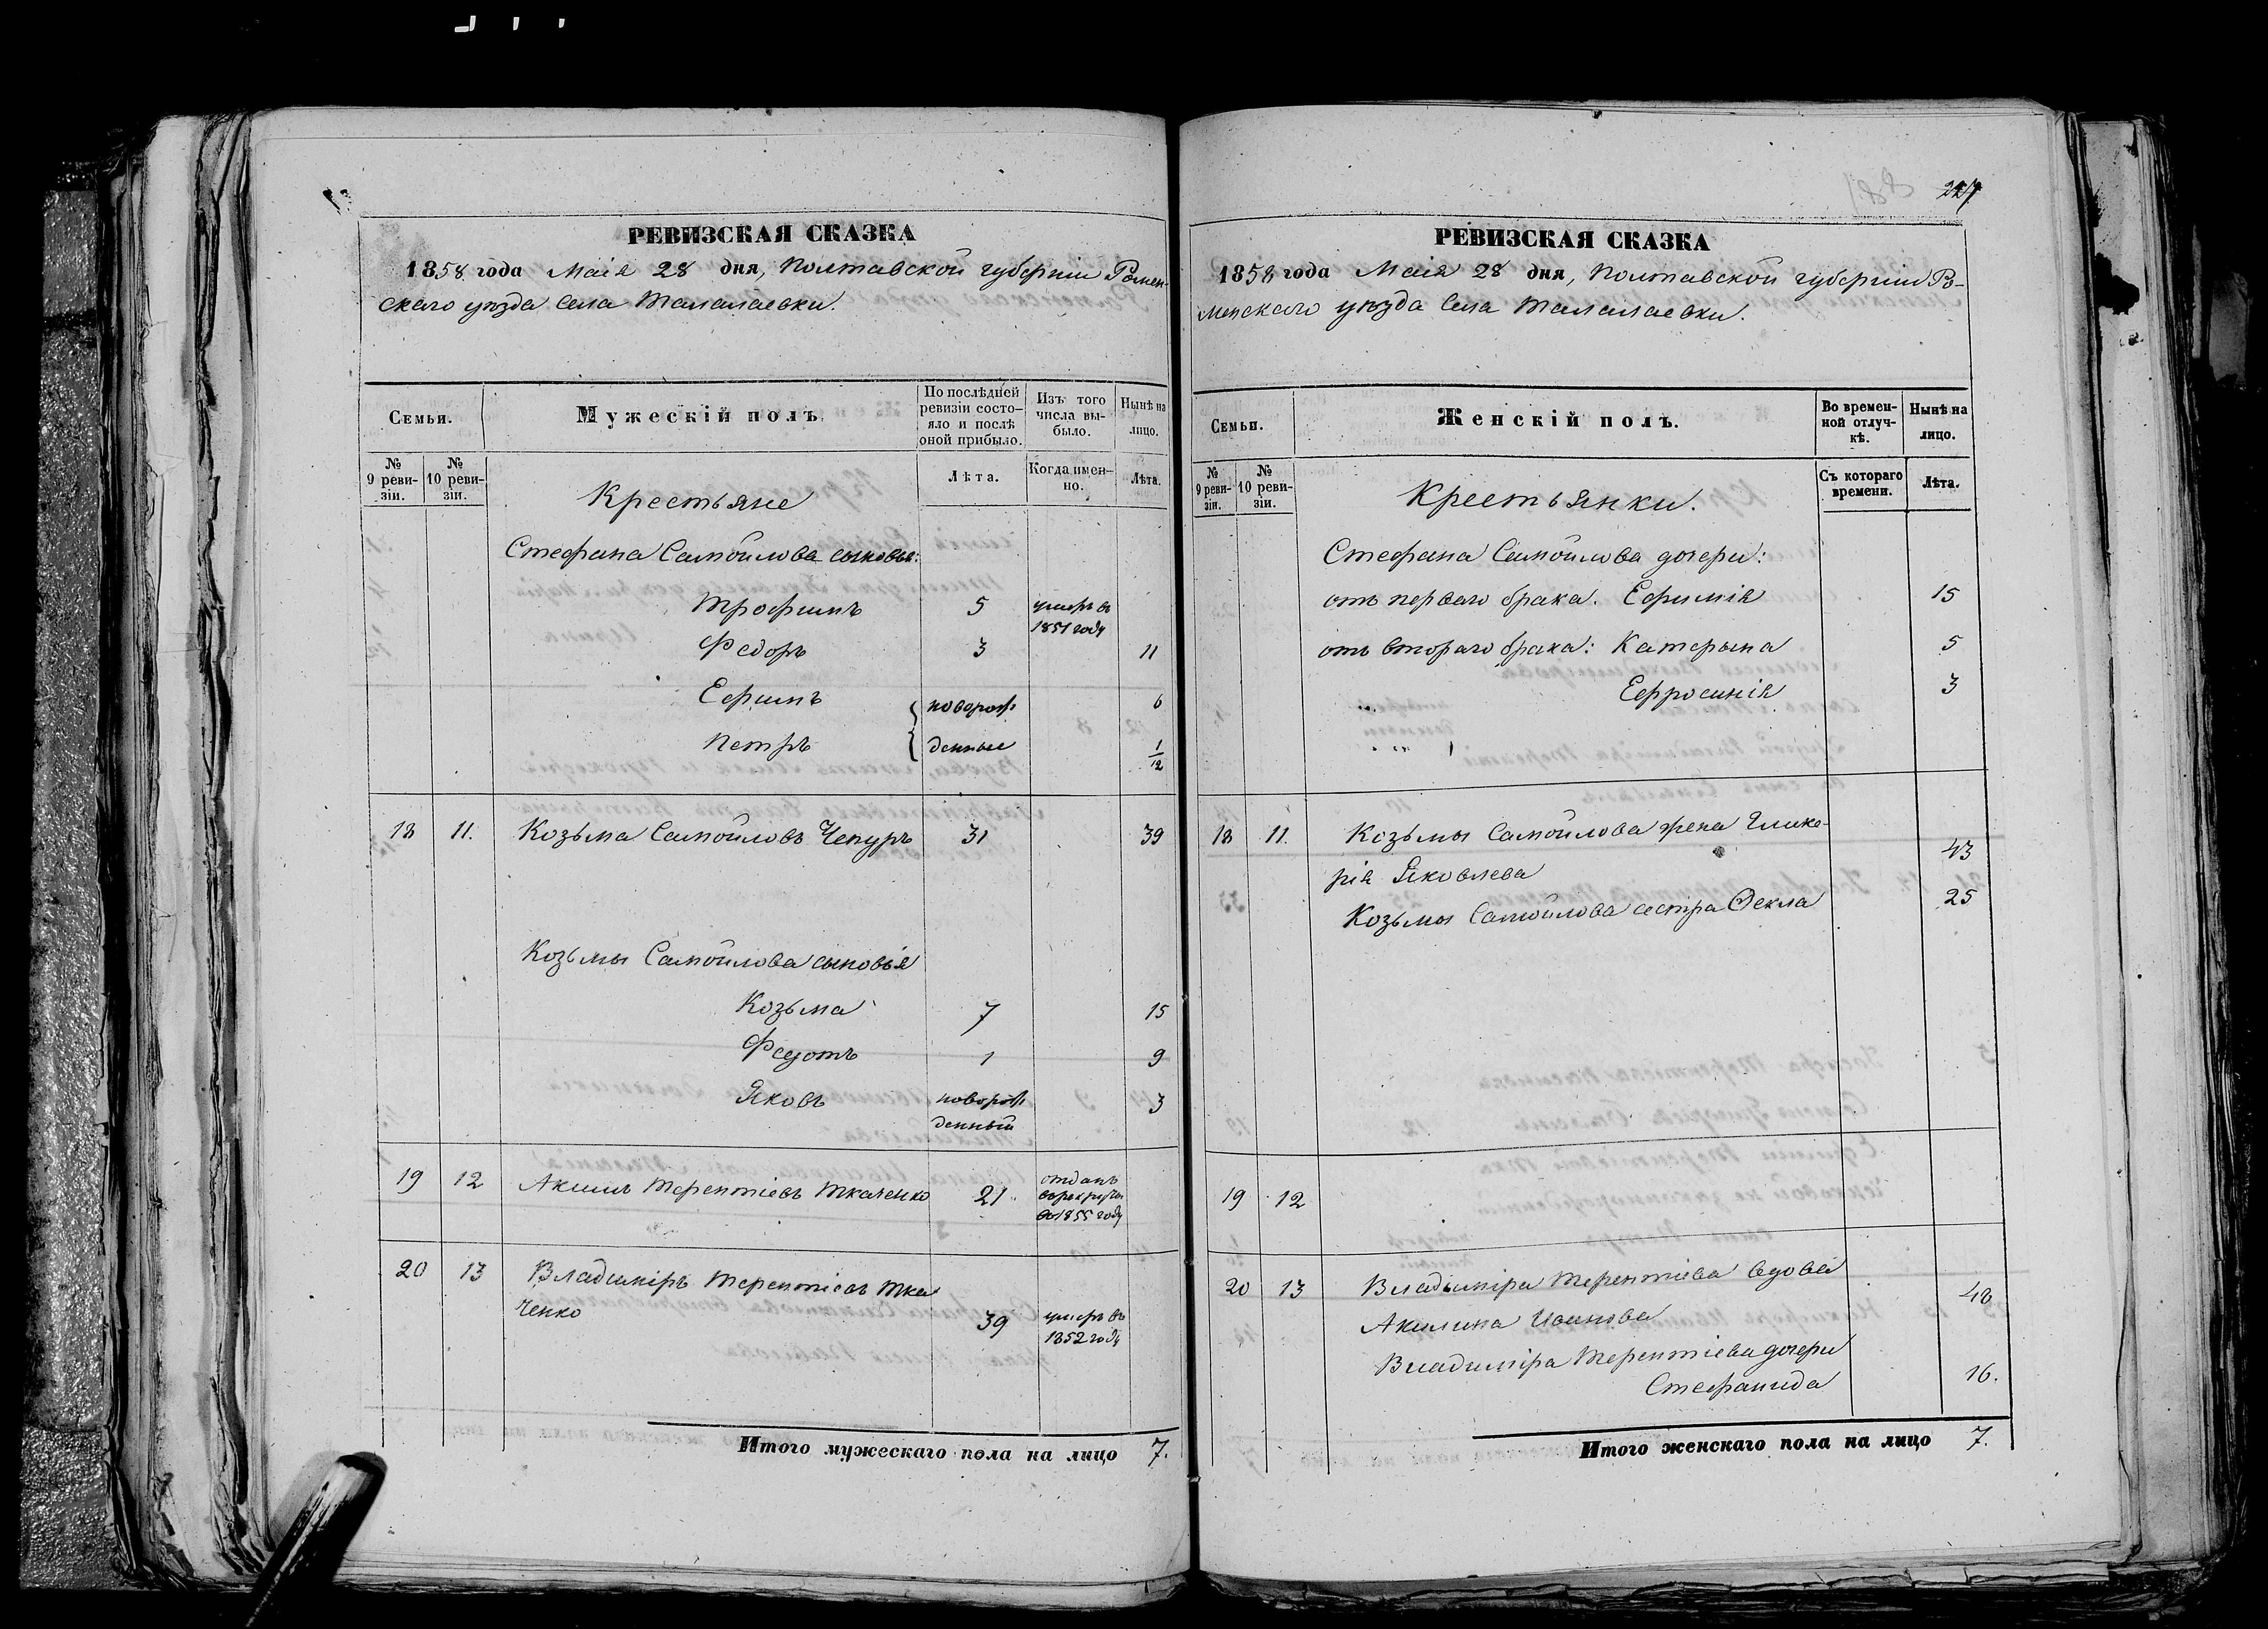 РЕВИЗСКАЯ СКАЗКА
1858 года Маія 28 дня, Полтавской губерніи Ромен-
скаго уѣзда Села Талалаевки.
Семьи.
Мужескій полъ.
По послѣдней ревизіи состо-яло и послѣ оной прибыло.
Изъ того числа вы-было.
Нынѣ на лицо.
№ 9 реви-зіи.
№ 10 реви-зіи.
Лѣта.
Когда имен-но.
Лѣта.
Крестьяне
Стефана Самойлова сыновья:
Трофимъ 5 умеръ въ 1851 году
Федоръ 3 11
Ефимъ { новорож- 6
Петръ { денные 1/12
18 11. Козьма Самойловъ Чепуръ 31 39
Козьмы Самойлова сыновья
Козьма 7 15
Федотъ 1 9
Яковъ новорож- 3
денный
19 12 Акимъ Терентіевъ Ткаченко 21 отданъ в рекруты в 1855 году
20 13 Владиміръ Терентіевъ Тка
ченко 39 умеръ въ 1852 году
Итого мужескаго пола на лицо 7.
227
РЕВИЗСКАЯ СКАЗКА
1858 года Маія 28 дня, Полтавской губерніи Ро-
менскаго уѣзда Села Талалаевки.
Семьи.
Женскій полъ.
Во времен-ной отлуч-кѣ.
Нынѣ на лицо.
№ 9 реви-зіи.
№ 10 реви-зіи.
Съ котораго времени.
Лѣта.
Крестьянки.
Стефана Самойлова дочери:
отъ перваго брака. Ефимія 15
отъ втораго брака: Катерына 5
Ефросинія 3
18 11. Козьмы Самойлова жена Глике-
рія Яковлева 43
Козьмы Самойлова сестра Фекла 25
19 12
20 13 Владиміра Терентіева вдова
Акилина Иванова 48
Владиміра Терентіева дочери
Стефанида 16.
Итого женскаго пола на лицо 7.